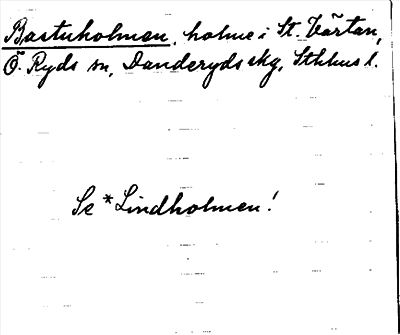 Bastuholmen, holme i St. Värtan,
Ö. Ryds sn, Danderyds skg, Sthlms l.
Se *Lindholmen!